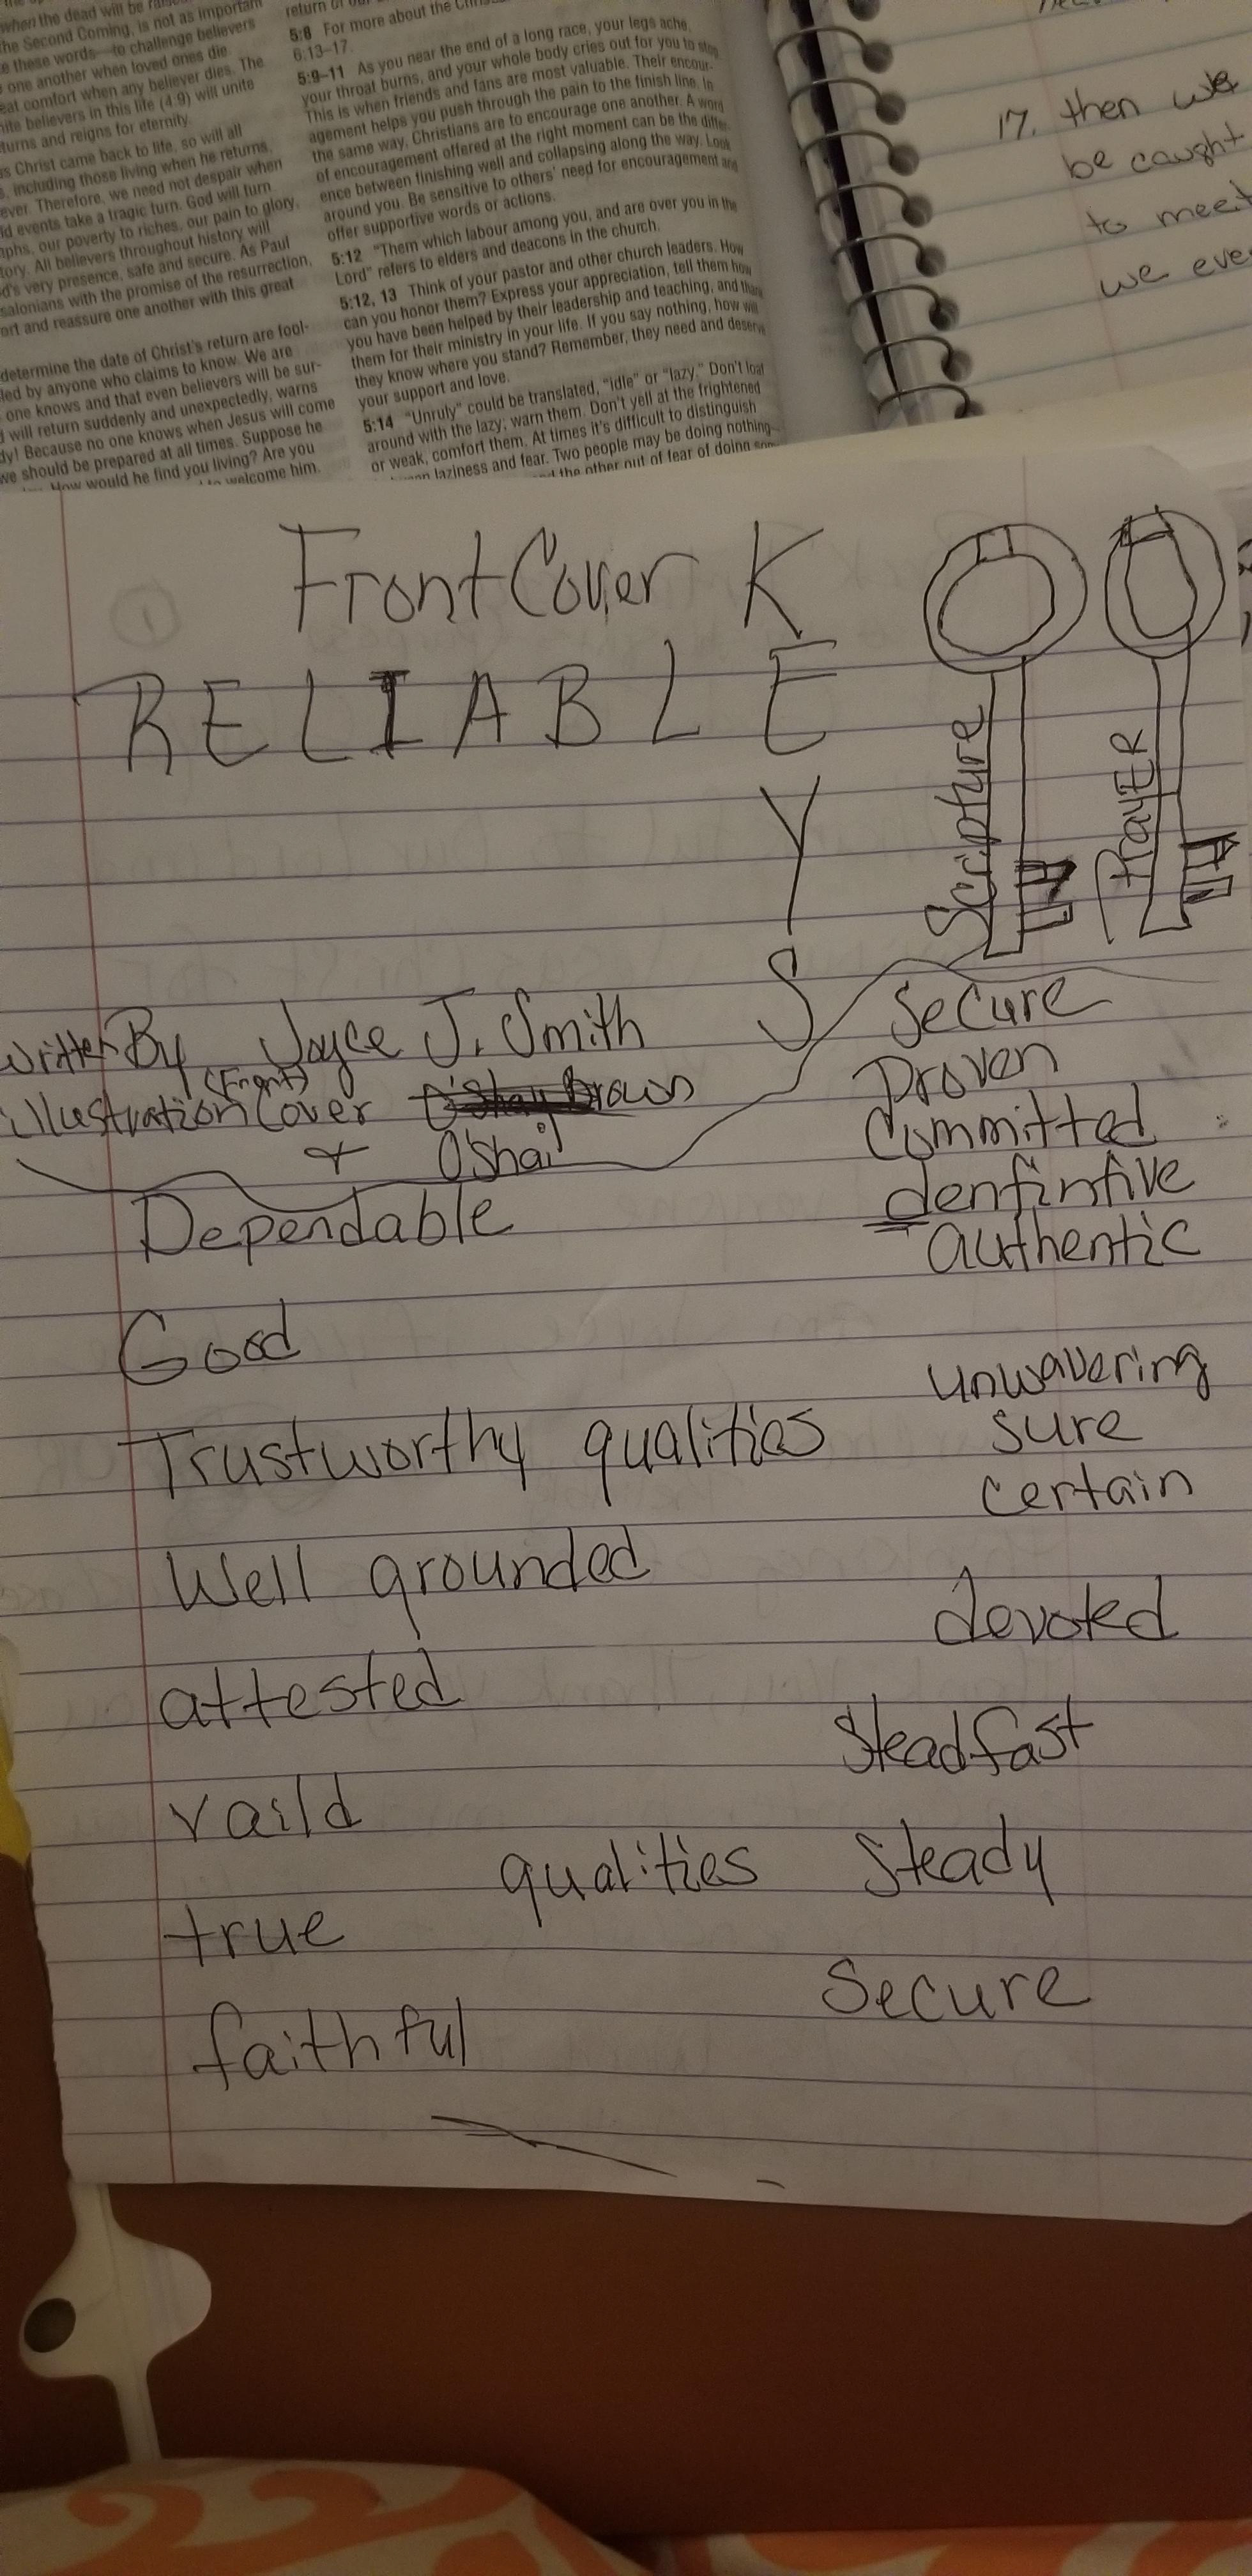 when the dead will be
the Second Coming, is not as important
e these words—to challenge believers
one another when loved ones die.
eat comfort when any believer dies. The
nite believers in this life (4:9) will unite
turns and reigns for eternity.
s Christ came back to life, so will all
s, including those living when he returns,
ever. Therefore, we need not despair when
ld events take a tragic turn. God will turn
phs, our poverty to riches, our pain to glory,
tory. All believers throughout history will
d's very presence, safe and secure. As Paul
salonians with the promise of the resurrection,
ort and reassure one another with this great
determine the date of Christ's return are fool-
led by anyone who claims to know. We are
one knows and that even believers will be sur-
d will return suddenly and unexpectedly, warns
dy! Because no one knows when Jesus will come
we should be prepared at all times. Suppose he
How would he find you living? Are you
to welcome him.
return of
5:8 For more about the
6:13–17.
5:9–11 As you near the end of a long race, your legs ache,
your throat burns, and your whole body cries out for you to stop.
This is when friends and fans are most valuable. Their encour-
agement helps you push through the pain to the finish line. In
the same way, Christians are to encourage one another. A word
of encouragement offered at the right moment can be the differ-
ence between finishing well and collapsing along the way. Look
around you. Be sensitive to others' need for encouragement and
offer supportive words or actions.
5:12 "Them which labour among you, and are over you in the
Lord" refers to elders and deacons in the church.
5:12, 13 Think of your pastor and other church leaders. How
can you honor them? Express your appreciation, tell them how
you have been helped by their leadership and teaching, and thank
them for their ministry in your life. If you say nothing, how will
they know where you stand? Remember, they need and deserve
your support and love.
5:14 "Unruly" could be translated, "idle" or "lazy." Don't loaf
around with the lazy; warn them. Don't yell at the frightened
or weak, comfort them. At times it's difficult to distinguish
laziness and fear. Two people may be doing nothing—
and the other out of fear of doing
17. then we
be caught
to meet
we eve
Front Cover K
RELIABLE
Y
S
Scripture
PrayER
Written By Joyce J. Smith
(Front)
illustration Cover O'Shay Brown
+ O'Shai
Secure
Proven
Committed
denfintive
authentic
Dependable
Good
unwavering
Trustworthy qualities sure
certain
Well grounded
devoted
attested
Steadfast
vaild
qualities Steady
true
Secure
faithful